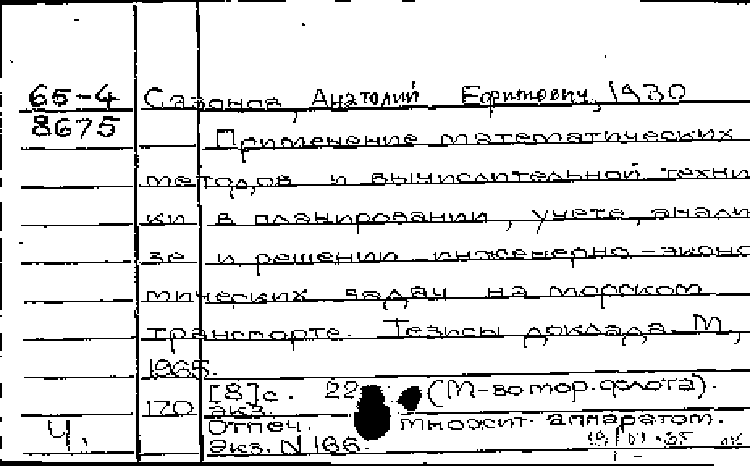 65-4 Сазонов, Анатолий Ефимович, 1930
8675 Применение математических
методов и вычислительной техни
ки в планировании, учете, анали
зе и решении инженерно-эконо
мических задач на морском
транспорте. Тезисы доклада. М,
1965.
[8]с. 22 (М-во мор. флота).
170 экз.
Отпеч. множит. аппаратом.
Ч. Экз. N 166.